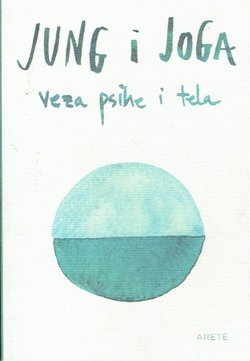 JUNG i JOGA
veza psihe i tela
ARETE